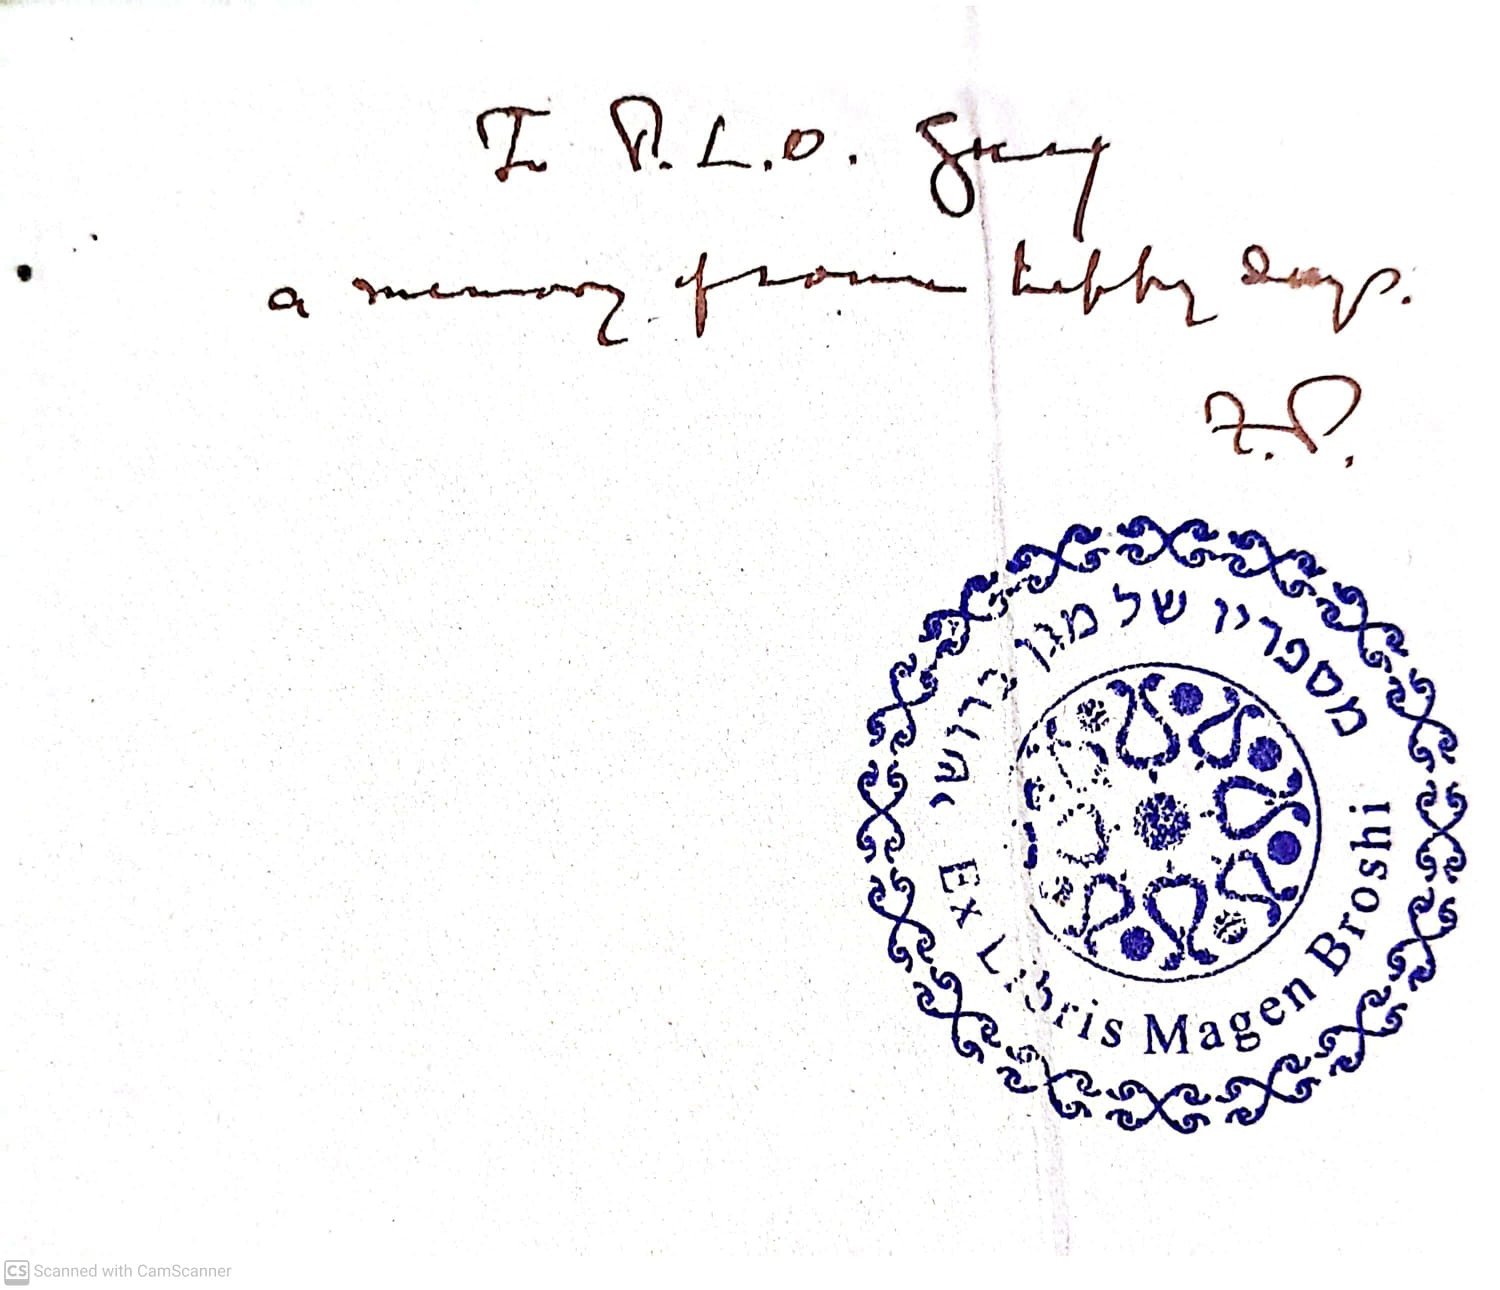 To P.L.O. Guy
a memory from happy days.
F.P.
מספריו של מגן ברושי
Ex Libris Magen Broshi
CS Scanned with CamScanner